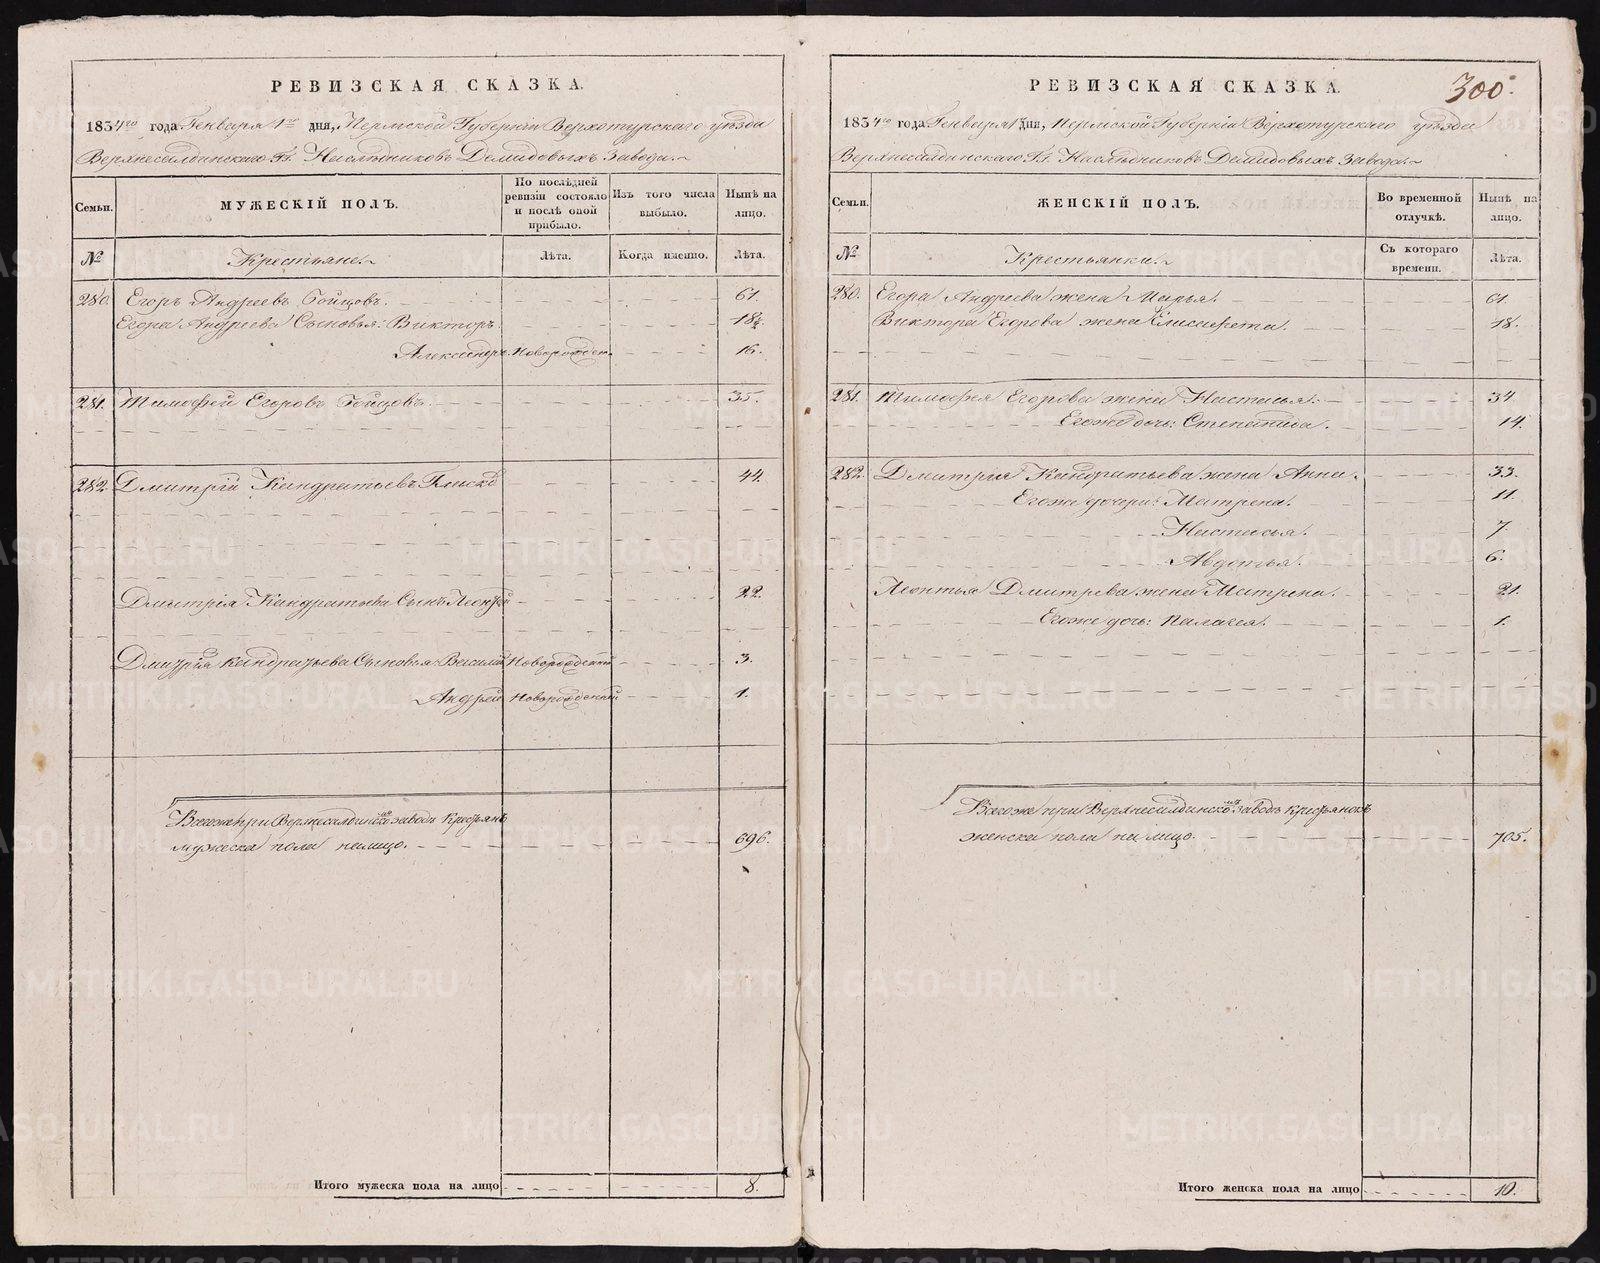 РЕВИЗСКАЯ СКАЗКА.
1834го года Генваря 1го дня, Пермской Губерніи Верхотурскаго уѣзда
Верхнесалдинскаго Гг. Наслѣдниковъ Демидовыхъ Завода.
Семьи. МУЖЕСКІЙ ПОЛЪ. По послѣдней ревизіи состояло и послѣ оной прибыло. Изъ того числа выбыло. Нынѣ на лицо.
№ Крестьяне. Лѣта. Когда именно. Лѣта.
280. Егоръ Андреевъ Бойцовъ. 61.
Егора Андреева Сыновья: Викторъ. 18½
Александръ. Новорожден. 16.
281. Тимофей Егоровъ Бойцовъ. 35.
282. Дмитрій Кандратьевъ 44.
Дмитрія Кандратьева Сынъ Леонтій 22.
Дмитрія Кандратьева Сыновья: Василій Новорожденный 3.
Андрей Новорожденный 1.
Всего же при Верхнесалдинскомъ заводѣ Крестьянъ
мужеска пола на лицо. 696.
Итого мужеска пола на лицо 8.
РЕВИЗСКАЯ СКАЗКА. 300.
1834го года Генваря 1 дня, Пермской Губерніи Верхотурскаго уѣзда
Верхнесалдинскаго Гг. Наслѣдниковъ Демидовыхъ Завода.
Семьи. ЖЕНСКІЙ ПОЛЪ. Во временной отлучкѣ. Нынѣ на лицо.
№ Крестьянки. Съ котораго времени. Лѣта.
280. Егора Андреева жена Марья. 61.
Виктора Егорова жена Елисавета. 18.
281. Тимофея Егорова жена Настасья. 34
Егоже дочь: Степанида. 14.
282. Дмитрія Кандратьева жена Анна. 33.
Егоже дочери: Матрена. 11.
Настасья. 7.
Авдотья. 6.
Леонтья Дмитрева жена Матрена. 21.
Егоже дочь: Палагея. 1.
Всего же при Верхнесалдинскомъ заводѣ Крестьянокъ
женска пола на лицо. 705.
Итого женска пола на лицо 10.
METRIKI.GASO-URAL.RU